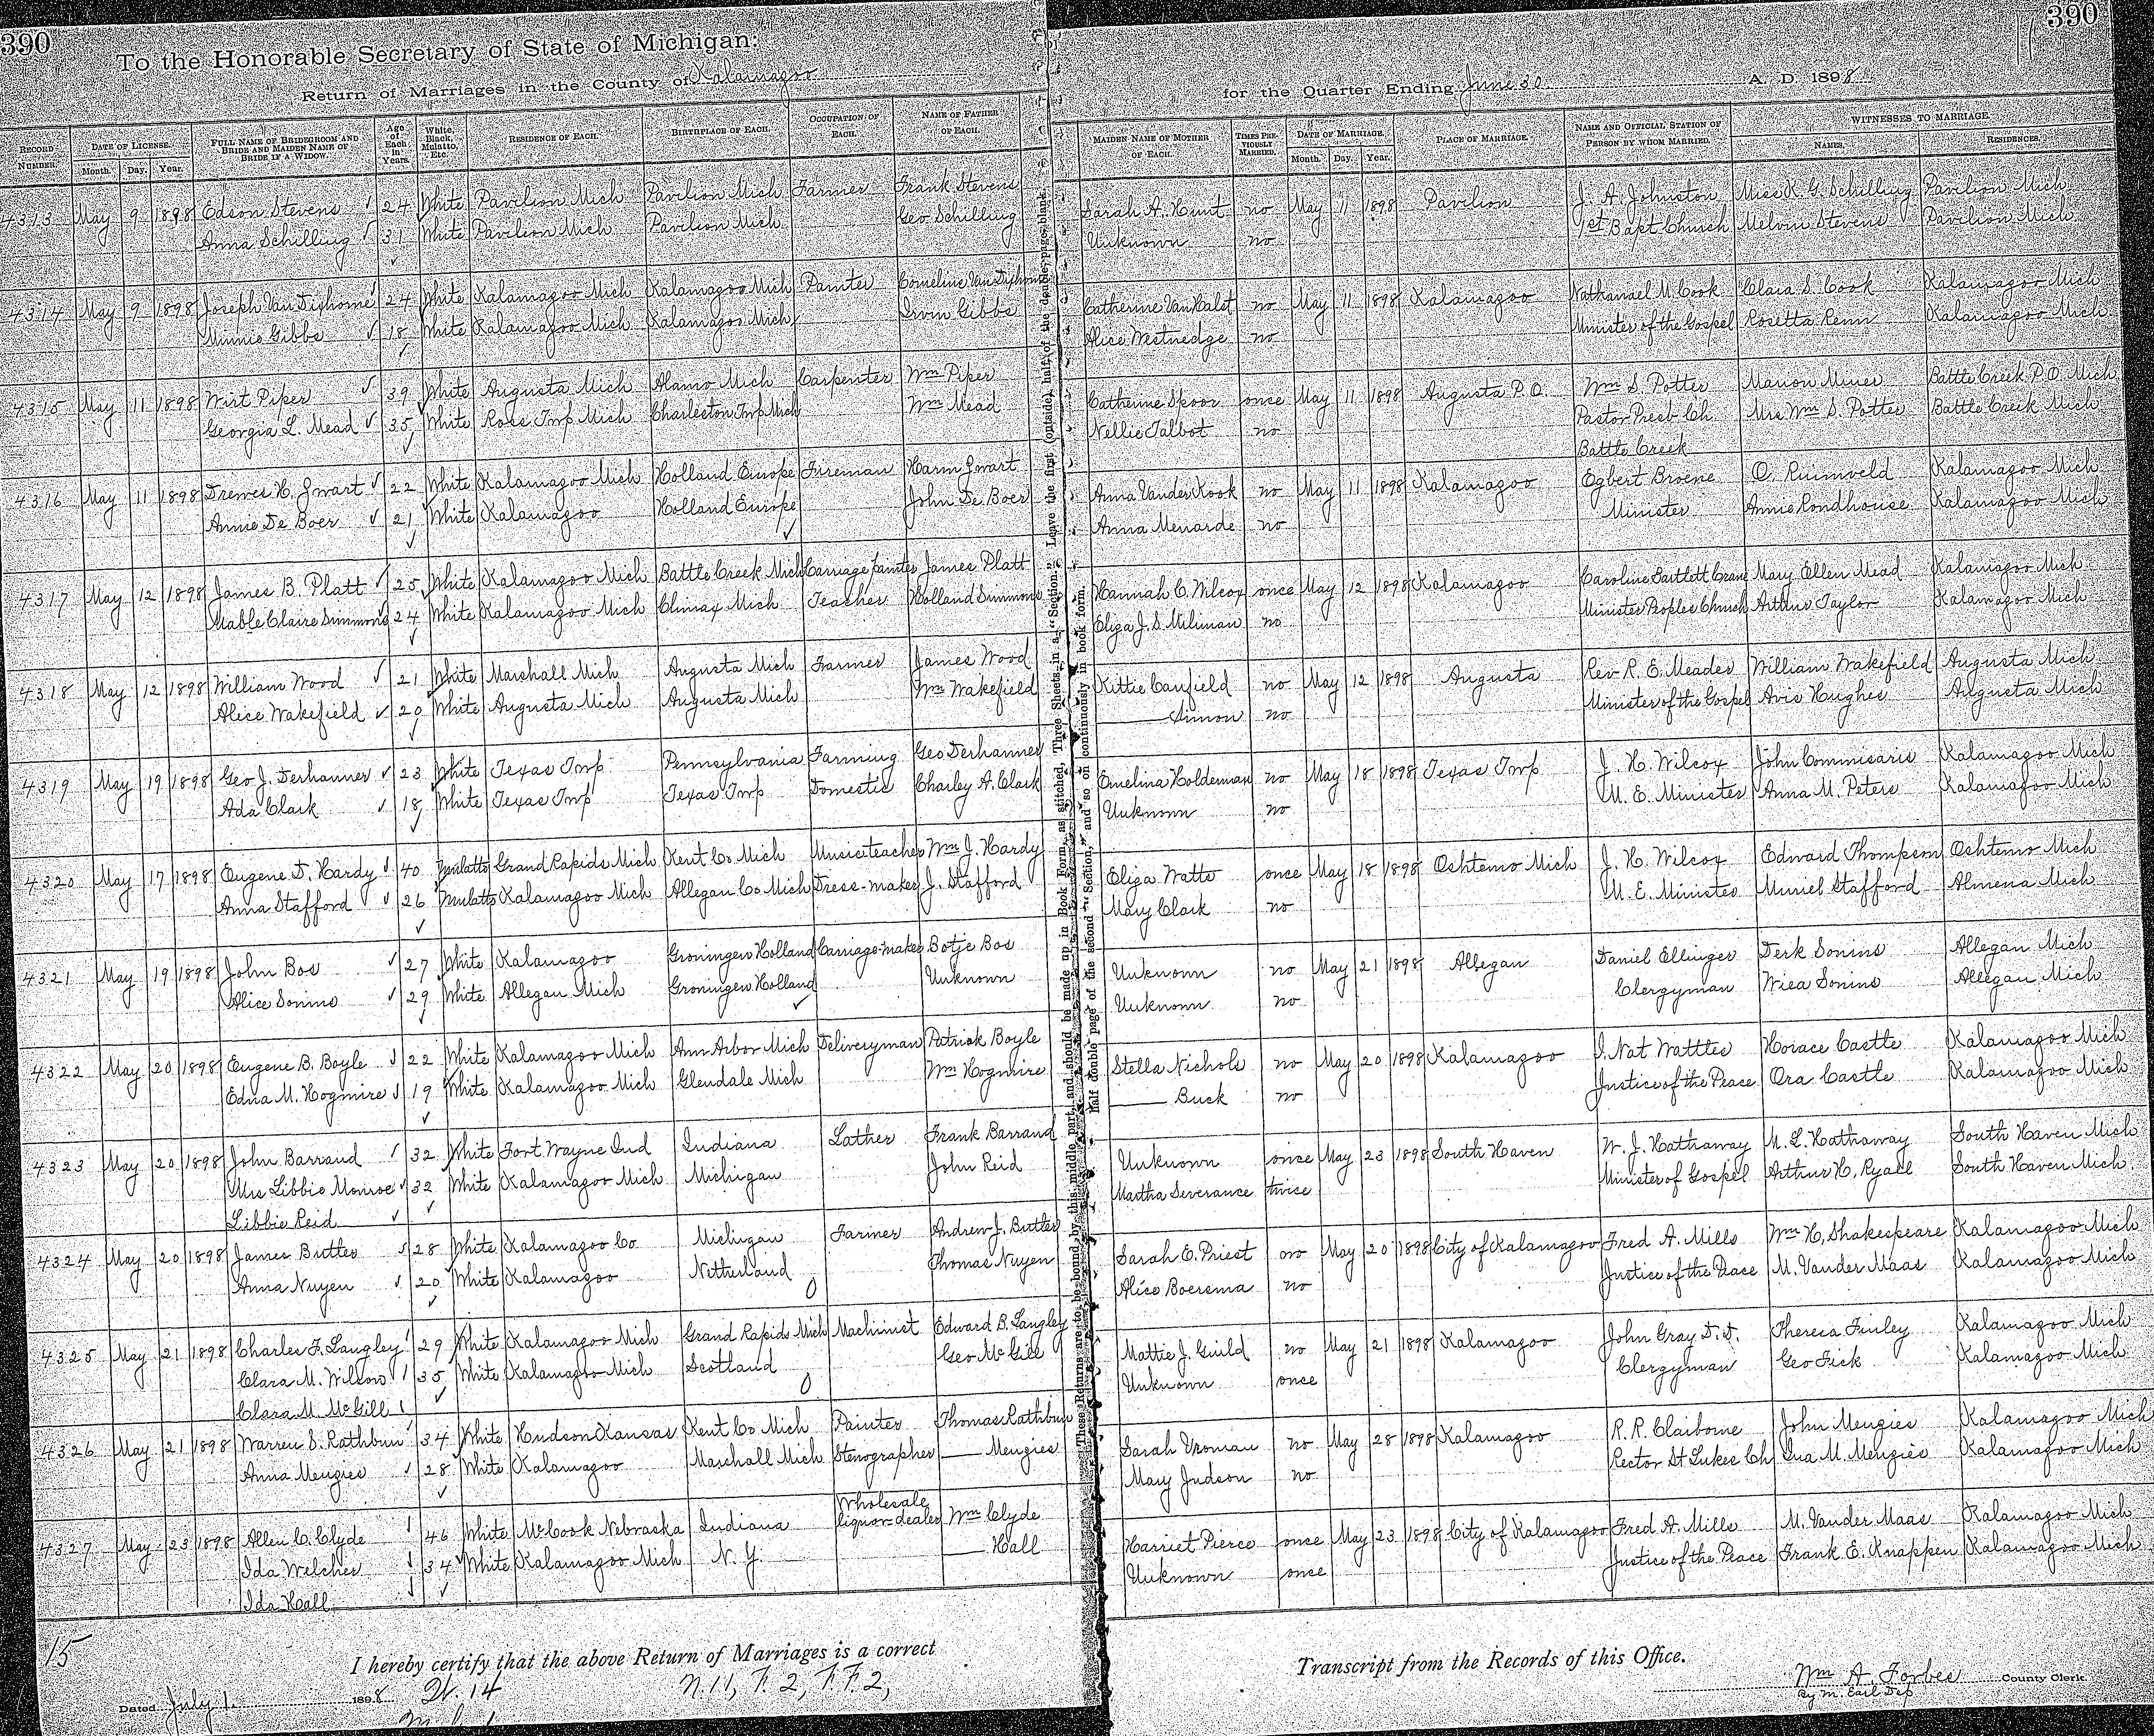 390
390
To the Honorable Secretary of State of Michigan:
Return of Marriages in the County of Kalamazoo for the Quarter Ending June 30. A. D. 1898
RECORD NUMBER. DATE OF LICENSE. Month. Day. Year. FULL NAME OF BRIDEGROOM AND BRIDE AND MAIDEN NAME OF BRIDE IF A WIDOW. Age of Each in Years. White, Black, Mulatto, Etc. RESIDENCE OF EACH. BIRTHPLACE OF EACH. OCCUPATION OF EACH. NAME OF FATHER OF EACH. MAIDEN NAME OF MOTHER OF EACH. TIMES PREVIOUSLY MARRIED. DATE OF MARRIAGE. Month. Day. Year. PLACE OF MARRIAGE. NAME AND OFFICIAL STATION OF PERSON BY WHOM MARRIED. WITNESSES TO MARRIAGE NAMES. RESIDENCES.
4313 May 9 1898 Edson Stevens 24 White Pavilion Mich Pavilion Mich Farmer Frank Stevens Sarah A. Hunt no May 11 1898 Pavilion J. A. Johnston Miss K. G. Schilling Pavilion Mich
Anna Schilling 31 White Pavilion Mich Pavilion Mich Geo Schilling Unknown no 1st Bapt Church Melvin Stevens Pavilion Mich
4314 May 9 1898 Joseph Van Dishome 24 White Kalamazoo Mich Kalamazoo Mich Painter no May 11 1898 Kalamazoo Nathanael M. Cook Clara S. Cook Kalamazoo Mich
Minnie Gibbs 18 White Kalamazoo Mich Kalamazoo Mich Irvin Gibbs Alice Westnedge no Minister of the Gospel Rosetta Renn Kalamazoo Mich
4315 May 11 1898 Wirt Piper 39 White Augusta Mich Alamo Mich Carpenter Wm Piper Catherine Spoor once May 11 1898 Augusta P.O. Wm S. Potter Marion Miner Battle Creek P.O. Mich
Georgia L. Mead 35 White Ross Twp Mich Charleston Twp Mich Wm Mead Nellie Talbot no Pastor Presb Ch Mrs Wm S. Potter Battle Creek Mich
Battle Creek
4316 May 11 1898 Drewes H. Zwart 22 White Kalamazoo Mich Holland Europe Fireman Harm Zwart Anna Vander Kook no May 11 1898 Kalamazoo Egbert Broene O. Ruimveld Kalamazoo Mich
Annie De Boer 21 White Kalamazoo Holland Europe John De Boer Anna Menarde no Minister Annie Rondhouse Kalamazoo Mich
4317 May 12 1898 James B. Platt 25 White Kalamazoo Mich Battle Creek Mich Carriage Painter James Platt Hannah C. Wilcox once May 12 1898 Kalamazoo Caroline Bartlett Crane Mary Ellen Mead Kalamazoo Mich
Mable Claire Simmons 24 White Kalamazoo Mich Climax Mich Teacher Holland Simmons Eliza J. S. Miliman no Minister Peoples Church Arthur Taylor Kalamazoo Mich
4318 May 12 1898 William Wood 21 White Marshall Mich Augusta Mich Farmer James Wood Kittie Canfield no May 12 1898 Augusta Rev R. E. Meader William Wakefield Augusta Mich
Alice Wakefield 20 White Augusta Mich Augusta Mich Wm Wakefield —— Simon no Minister of the Gospel Avis Hughes Augusta Mich
4319 May 19 1898 Geo J. Derhammer 23 White Texas Twp Pennsylvania Farming Geo Derhammer Emelina Holdeman no May 18 1898 Texas Twp J. H. Wilcox John Commisaris Kalamazoo Mich
Ada Clark 18 White Texas Twp Texas Twp Domestic Charley A. Clark Unknown no M. E. Minister Anna M. Peters Kalamazoo Mich
4320 May 17 1898 Eugene D. Hardy 40 Mulatto Grand Rapids Mich Kent Co Mich Music teacher Wm J. Hardy Eliza Watts once May 18 1898 Oshtemo Mich J. H. Wilcox Edward Thompson Oshtemo Mich
Anna Stafford 26 Mulatto Kalamazoo Mich Allegan Co Mich Dress-maker J. Stafford Mary Clark no M. E. Minister Muriel Stafford Almena Mich
4321 May 19 1898 John Bos 27 White Kalamazoo Groningen Holland Carriage-maker Botje Bos Unknown no May 21 1898 Allegan Daniel Ellinger Derk Sonins Allegan Mich
Alice Sonins 29 White Allegan Mich Groningen Holland Unknown Unknown no Clergyman Wiea Sonins Allegan Mich
4322 May 20 1898 Eugene B. Boyle 22 White Kalamazoo Mich Ann Arbor Mich Deliveryman Patrick Boyle Stella Nichols no May 20 1898 Kalamazoo J. Nat Wattles Horace Castle Kalamazoo Mich
Edna M. Hogmire 19 White Kalamazoo Mich Glendale Mich Wm Hogmire —— Buck no Justice of the Peace Ora Castle Kalamazoo Mich
4323 May 20 1898 John Barrand 32 White Fort Wayne Ind Indiana Lather Frank Barrand Unknown once May 23 1898 South Haven W. J. Hathaway M. L. Hathaway South Haven Mich
Mrs Libbie Monroe 32 White Kalamazoo Mich Michigan John Reid Martha Severance twice Minister of Gospel Arthur H. Ryall South Haven Mich
Libbie Reid
4324 May 20 1898 James Butler 28 White Kalamazoo Co Michigan Farmer Andrew J. Butler Sarah E. Priest no May 20 1898 City of Kalamazoo Fred A. Mills Wm H. Shakespeare Kalamazoo Mich
Anna Nuyen 20 White Kalamazoo Netherland Thomas Nuyen Alice Boersma no Justice of the Peace M. Vander Maas Kalamazoo Mich
4325 May 21 1898 Charles F. Langley 29 White Kalamazoo Mich Grand Rapids Mich Machinist Edward B. Langley Mattie J. Guild no May 21 1898 Kalamazoo John Gray D.D. Theresa Finley Kalamazoo Mich
Clara M. Wilson 35 White Kalamazoo Mich Scotland Geo McGill Unknown once Clergyman Geo Fick Kalamazoo Mich
Clara M. McGill
4326 May 21 1898 Warren S. Rathbun 34 White Hudson Kansas Kent Co Mich Painter Thomas Rathbun Sarah Vroman no May 28 1898 Kalamazoo R. R. Claiborne John Menzies Kalamazoo Mich
Anna Menzies 28 White Kalamazoo Marshall Mich Stenographer —— Menzies Mary Judson no Rector St Lukes Ch Ina M. Menzies Kalamazoo Mich
4327 May 23 1898 Allen C. Clyde 46 White McCook Nebraska Indiana Wholesale liquor-dealer Wm Clyde Harriet Pierce once May 23 1898 City of Kalamazoo Fred A. Mills M. Vander Maas Kalamazoo Mich
Ida Welcher 34 White Kalamazoo Mich N. Y. —— Hall Unknown once Justice of the Peace Frank E. Knappen Kalamazoo Mich
Ida Hall
(These Returns are to be bound by this middle part, and should be made up in Book Form, as stitched, Three Sheets in a "Section." Leave the first (outside), half of the double page, blank.
half double page of the second "Section," and so on continuously in book form.
15
I hereby certify that the above Return of Marriages is a correct Transcript from the Records of this Office.
Dated July 1. 1898 W. 14 N. 11, F. 2, F. F. 2,
Wm A. Forbes County Clerk
By M. Earl Dep